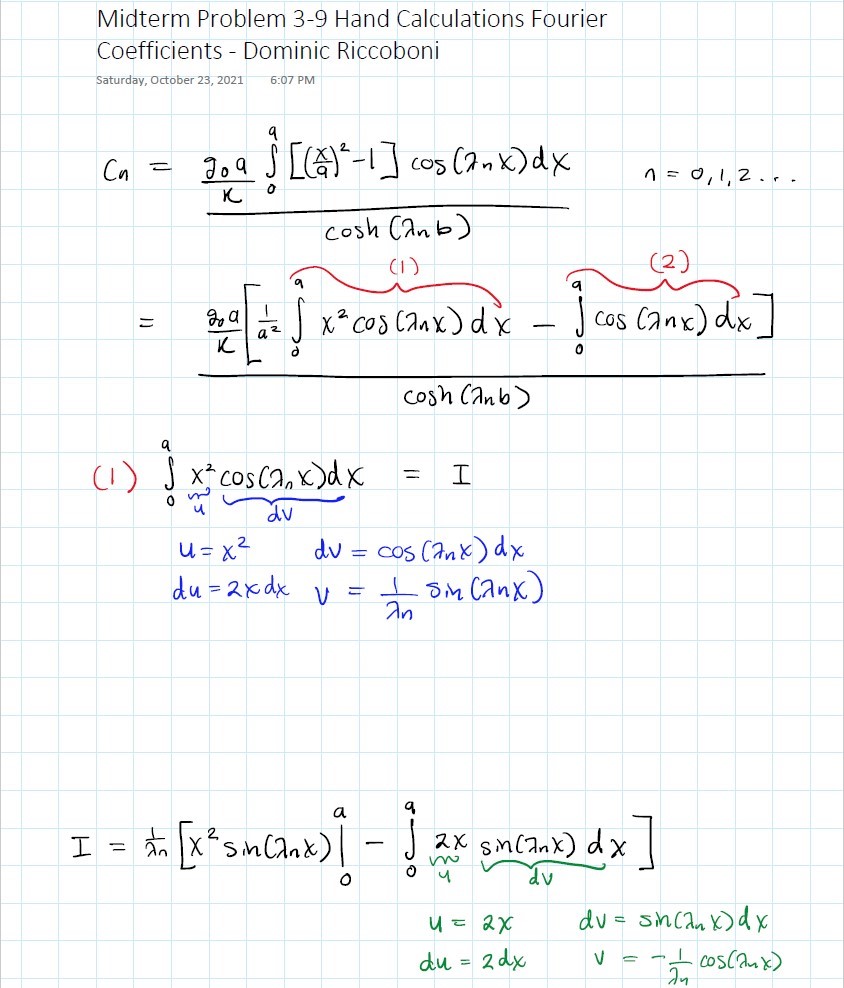 Midterm Problem 3-9 Hand Calculations Fourier
Coefficients - Dominic Riccoboni
Saturday, October 23, 2021 6:07 PM
Cn = g₀a/K ∫₀ᵃ [(x/a)² - 1] cos(λn x) dx / cosh(λn b) n = 0, 1, 2 ...
(1) (2)
= g₀a/K [1/a² ∫₀ᵃ x² cos(λn x) dx - ∫₀ᵃ cos(λn x) dx] / cosh(λn b)
(1) ∫₀ᵃ x² cos(λn x) dx = I
u dv
u = x² dv = cos(λn x) dx
du = 2x dx v = 1/λn sin(λn x)
I = 1/λn [x² sin(λn x) |₀ᵃ - ∫₀ᵃ 2x sin(λn x) dx]
u dv
u = 2x dv = sin(λn x) dx
du = 2 dx v = -1/λn cos(λn x)